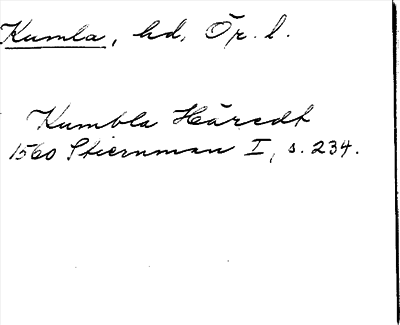 Kumla, hd, Ör. l.
Kumbla Häredt
1560 Stiernman I, s. 234.